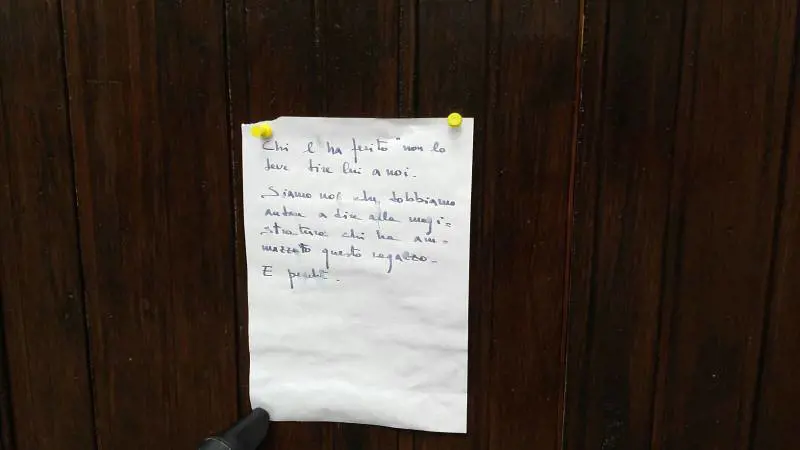 Chi l'ha ferito "non lo
deve dire lui a noi.
Siamo noi che dobbiamo
andare a dire alla magi=
stratura chi ha am=
mazzato questo ragazzo.
E perché.